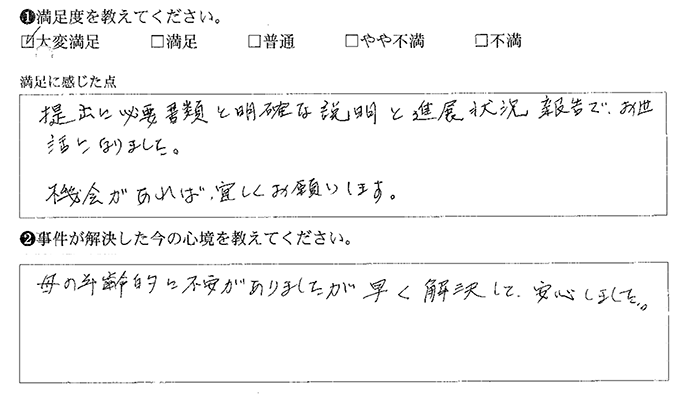 ❶満足度を教えてください。
☑大変満足 □満足 □普通 □やや不満 □不満
満足に感じた点
提出に必要書類と明確な説明と進展状況報告で、お世
話になりました。
機会があれば、宜しくお願いします。
❷事件が解決した今の心境を教えてください。
母の年齢的に不安がありましたが早く解決して、安心しました。